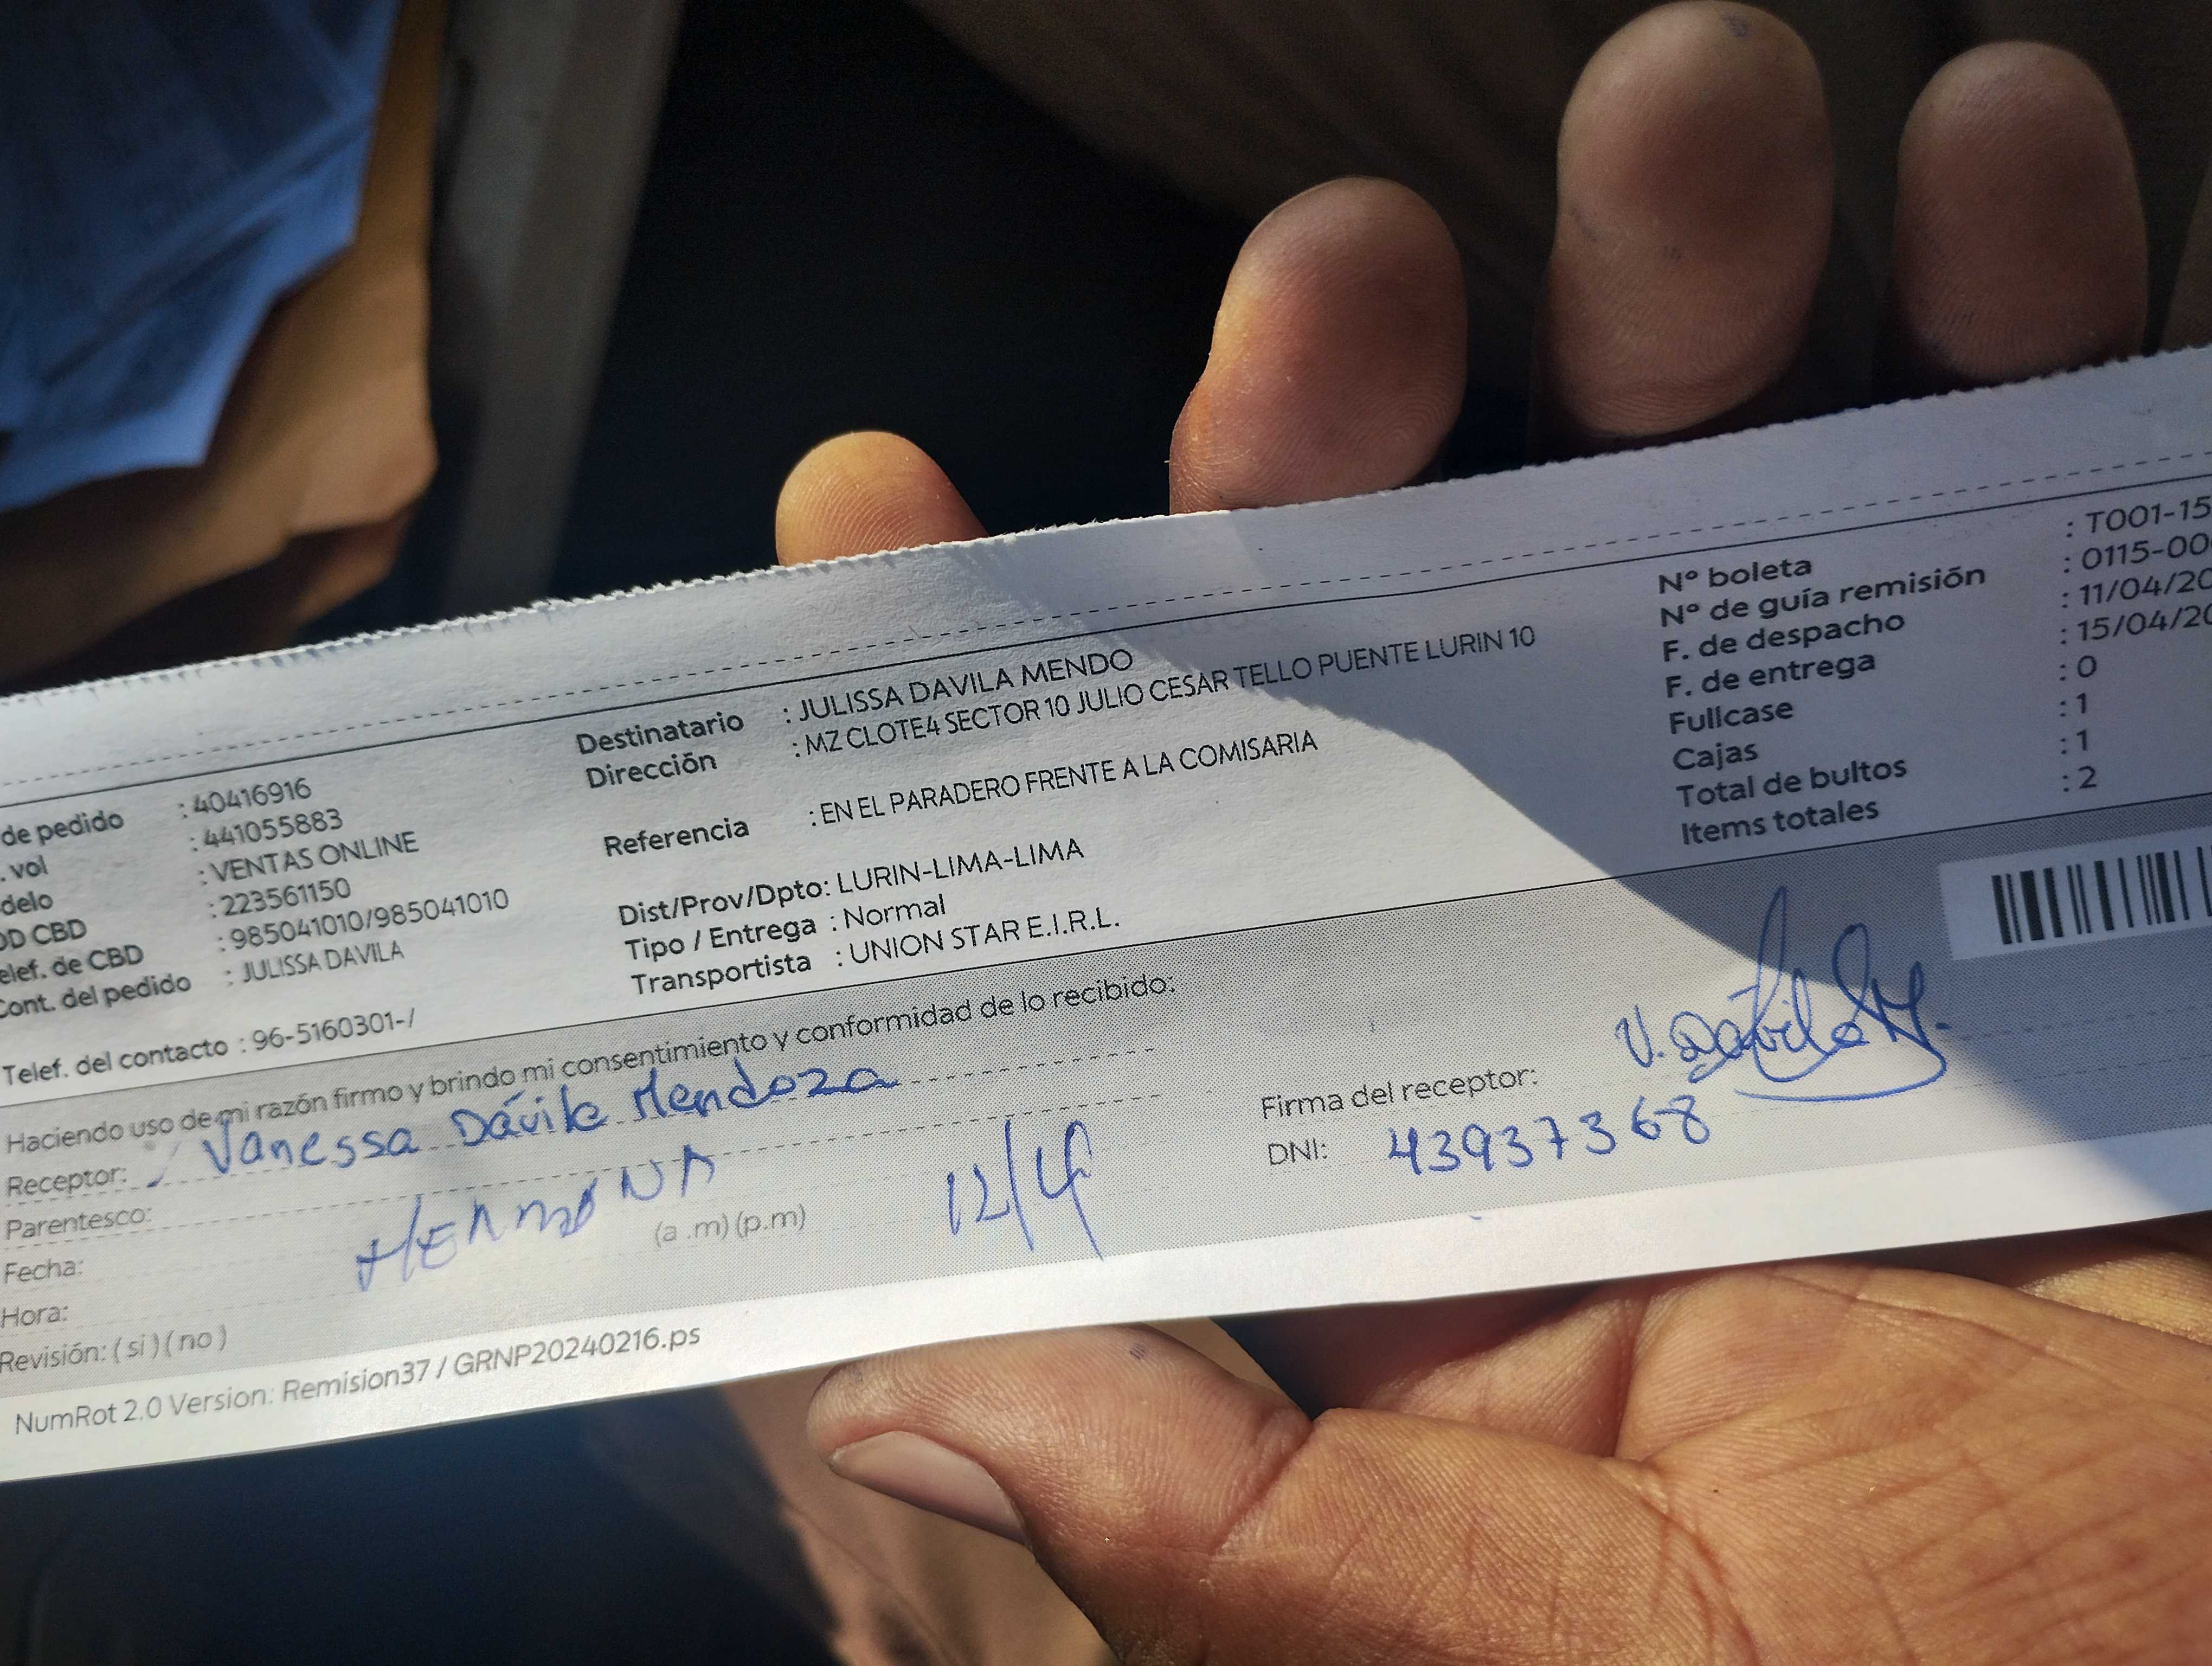 de pedido : 40416916
. vol : 441055883
delo : VENTAS ONLINE
OD CBD : 223561150
elef. de CBD : 985041010/985041010
Cont. del pedido : JULISSA DAVILA
Telef. del contacto : 96-5160301-/
Destinatario : JULISSA DAVILA MENDO
Dirección : MZ CLOTE4 SECTOR 10 JULIO CESAR TELLO PUENTE LURIN 10
Referencia : EN EL PARADERO FRENTE A LA COMISARIA
Dist/Prov/Dpto: LURIN-LIMA-LIMA
Tipo / Entrega : Normal
Transportista : UNION STAR E.I.R.L.
Nº boleta : T001-15
Nº de guía remisión : 0115-00
F. de despacho : 11/04/20
F. de entrega : 15/04/20
Fullcase : 0
Cajas : 1
Total de bultos : 1
Items totales : 2
Haciendo uso de mi razón firmo y brindo mi consentimiento y conformidad de lo recibido:
Receptor: Vanessa Dávila Mendoza
Parentesco: HERMANA
Fecha: 12/4
Hora: (a .m) (p.m)
Revisión: ( si ) ( no )
Firma del receptor: V. Dávila M.
DNI: 43937368
NumRot 2.0 Version: Remision37 / GRNP20240216.ps